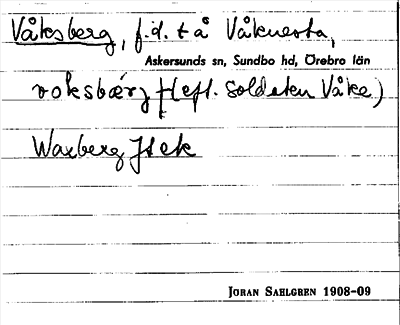 Våksberg, f.d. t å Våknesta,
Askersunds sn, Sundbo hd, Örebro län
voksbærj (eft. Soldaten Våke)
Waxberg Jsek
JORAN SAHLGREN 1908-09